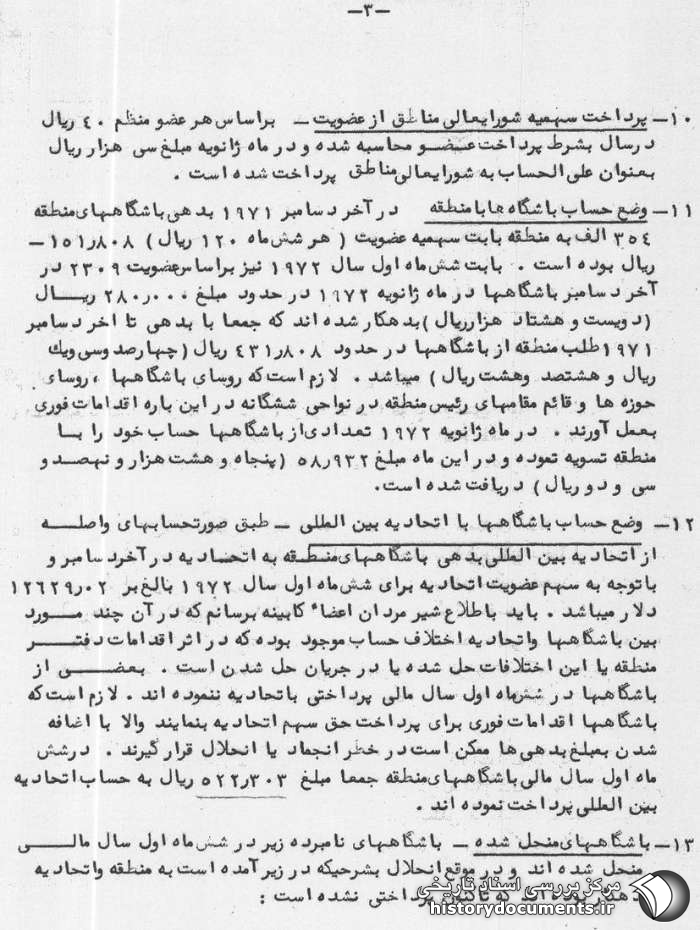 -۳-
۱۰- پرداخت سهمیه شورایعالی مناطق از عضویت - براساس هر عضو منظم ۴۰ ریال
درسال بشرط پرداخت عضو محاسبه شده و در ماه ژانویه مبلغ سی هزار ریال
بعنوان علی الحساب به شورایعالی مناطق پرداخت شده است .
۱۱- وضع حساب باشگاه ها با منطقه در آخر دسامبر ۱۹۷۱ بدهی باشگاههای منطقه
۳۵۴ الف به منطقه بابت سهمیه عضویت ( هر شش ماه ۱۲۰ ریال ) ۱۵۱٫۸۰۸-
ریال بوده است . بابت شش ماه اول سال ۱۹۷۲ نیز براساس عضویت ۲۳۰۹ در
آخر دسامبر باشگاهها در ماه ژانویه ۱۹۷۲ در حدود مبلغ ۲۸۰٫۰۰۰ ریال
(دویست و هشتاد هزار ریال ) بدهکار شده اند که جمعا با بدهی تا اخر دسامبر
۱۹۷۱ طلب منطقه از باشگاهها در حدود ۴۳۱٫۸۰۸ ریال ( چهارصد وسی ویك
ریال و هشتصد وهشت ریال ) میباشد . لازم است که روسای باشگاهها ، روسای
حوزه ها و قائم مقامهای رئیس منطقه در نواحی ششگانه در این باره اقدامات فوری
بعمل آورند . در ماه ژانویه ۱۹۷۲ تعدادی از باشگاهها حساب خود را با
منطقه تسویه نموده و در این ماه مبلغ ۵۸٫۹۳۲ (پنجاه و هشت هزار و نهصد و
سی و دو ریال ) دریافت شده است.
۱۲- وضع حساب باشگاهها با اتحادیه بین المللی - طبق صورتحسابهای واصله
از اتحادیه بین المللی بدهی باشگاههای منطقه به اتحادیه در آخر دسامبر و
باتوجه به سهم عضویت اتحادیه برای شش ماه اول سال ۱۹۷۲ بالغ بر ۱۲۶۲۹٫۰۲
دلار میباشد . باید باطلاع شیر مردان اعضاء کابینه برسانم که در آن چند مورد
بین باشگاهها واتحادیه اختلاف حساب موجود بوده که در اثر اقدامات دفتر
منطقه یا این اختلافات حل شده یا در جریان حل شدن است . بعضی از
باشگاهها در شش ماه اول سال مالی پرداختی باتحادیه ننموده اند . لازم است که
باشگاهها اقدامات فوری برای پرداخت حق سهم اتحادیه بنمایند والا با اضافه
شدن بمبلغ بدهی ها ممکن است در خطر انجماد یا انحلال قرار گیرند . در شش
ماه اول سال مالی باشگاههای منطقه جمعا مبلغ ۵۲۲٫۳۰۳ ریال به حساب اتحادیه
بین المللی پرداخت نموده اند .
۱۳- باشگاههای منحل شده - باشگاههای نامبرده زیر در شش ماه اول سال مالی
منحل شده اند و در موقع انحلال بشرحیکه در زیر آمده است به منطقه واتحادیه
بدهکار بوده اند که تاکنون پرداختی نشده است :
مرکز بررسی اسناد تاریخی
historydocuments.ir